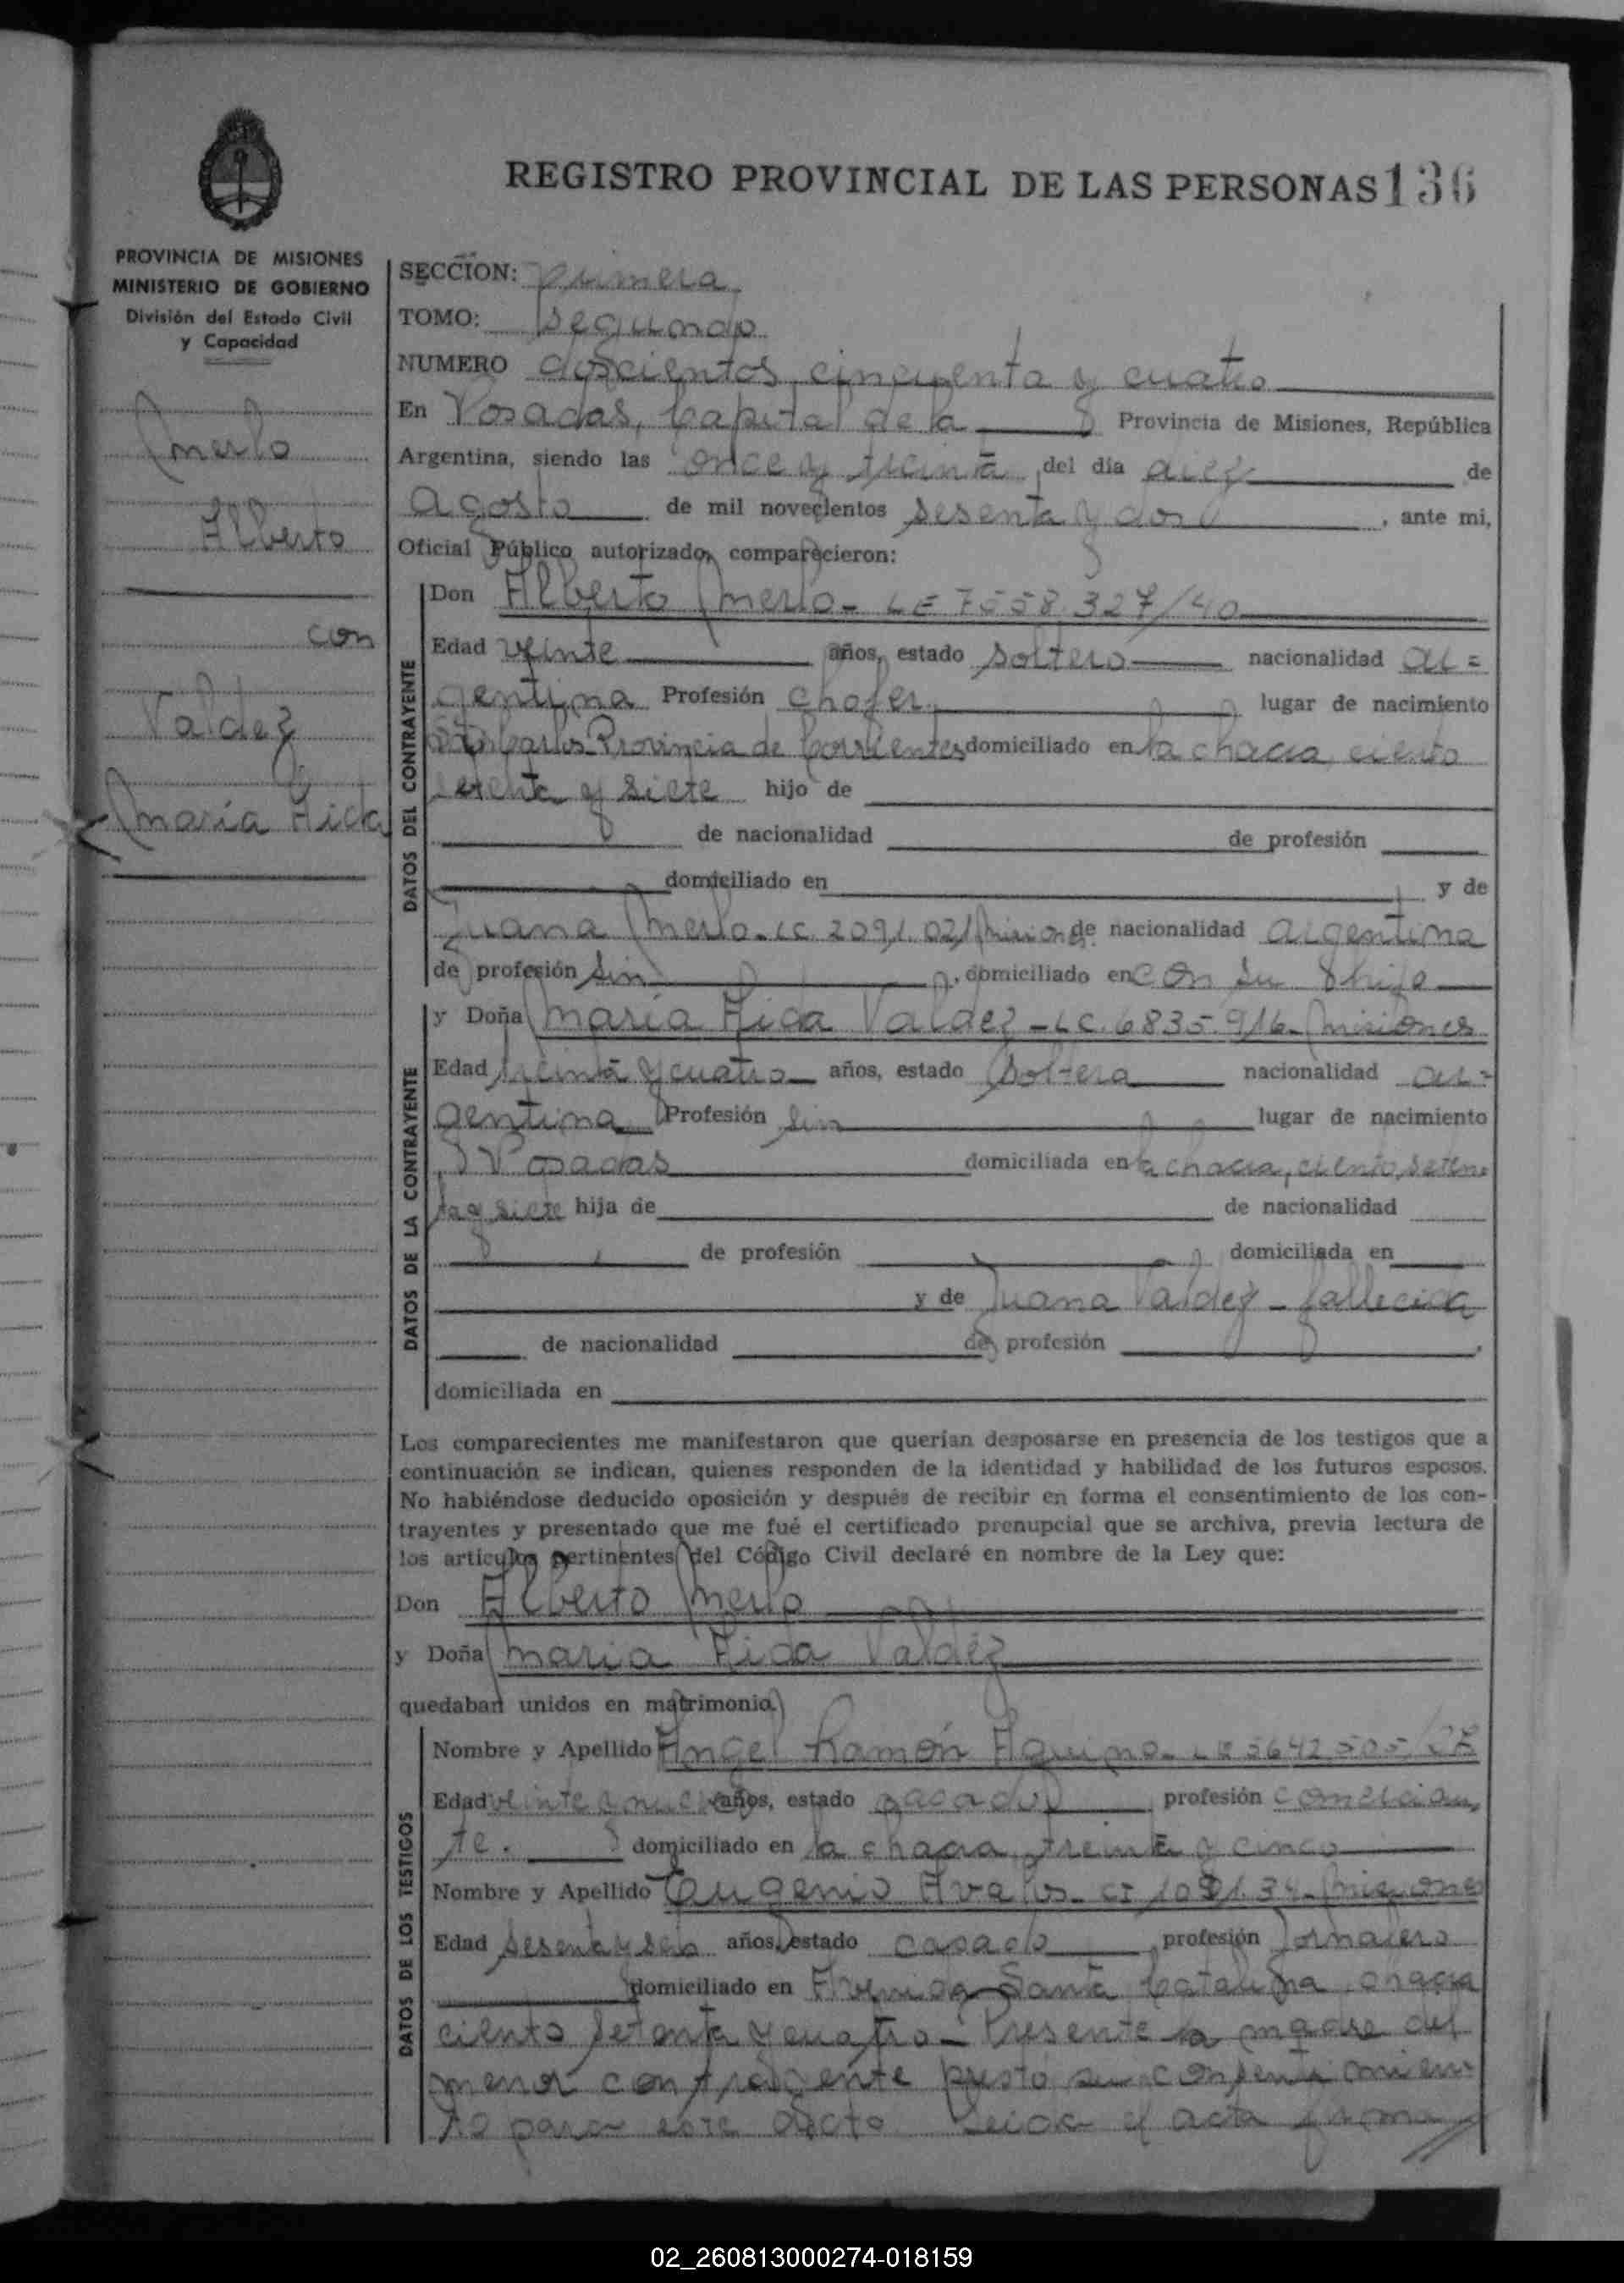 REGISTRO PROVINCIAL DE LAS PERSONAS 136
PROVINCIA DE MISIONES
MINISTERIO DE GOBIERNO
División del Estado Civil
y Capacidad
Merlo
Alberto
con
Valdez
María Aida
SECCION: primera
TOMO: segundo
NUMERO doscientos cincuenta y cuatro
En Posadas, Capital de la Provincia de Misiones, República
Argentina, siendo las once y treinta del día diez de
Agosto de mil novecientos sesenta y dos, ante mi,
Oficial Público autorizado, comparecieron:
DATOS DEL CONTRAYENTE
Don Alberto Merlo - LE 7558.327/40
Edad veinte años, estado soltero nacionalidad ar=
gentina Profesión chofer lugar de nacimiento
San Carlos Provincia de Corrientes domiciliado en la chacra, ciento
setenta y siete hijo de
de nacionalidad de profesión
domiciliado en y de
Juana Merlo - LC. 2091.021 Misiones de nacionalidad argentina
de profesión sin, domiciliado en con su hijo
DATOS DE LA CONTRAYENTE
y Doña María Aida Valdez - LC. 6835.916 - Misiones
Edad treinta y cuatro años, estado soltera nacionalidad ar=
gentina Profesión sin lugar de nacimiento
Posadas domiciliada en la chacra, ciento seten-
ta y siete hija de de nacionalidad
de profesión domiciliada en
y de Juana Valdez - fallecida
de nacionalidad de profesión
domiciliada en
Los comparecientes me manifestaron que querían desposarse en presencia de los testigos que a
continuación se indican, quienes responden de la identidad y habilidad de los futuros esposos.
No habiéndose deducido oposición y después de recibir en forma el consentimiento de los con-
trayentes y presentado que me fué el certificado prenupcial que se archiva, previa lectura de
los artículos pertinentes del Código Civil declaré en nombre de la Ley que:
Don Alberto Merlo
y Doña María Aida Valdéz
quedaban unidos en matrimonio.
DATOS DE LOS TESTIGOS
Nombre y Apellido Angel Ramón Aquino - LE 5642505/
Edad veinte y nueve años, estado casado profesión comercian
te. domiciliado en la chacra, treinta y cinco
Nombre y Apellido Eugenio Avalos - CI 10 1.34 - Misiones
Edad sesenta y seis años, estado casado profesión Jornalero
domiciliado en Avenida Santa Catalina, chacra
ciento setenta y cuatro - Presente la madre del
menor contrayente prestó su consentimien-
to para este acto Leida el acta firma
02_260813000274-018159